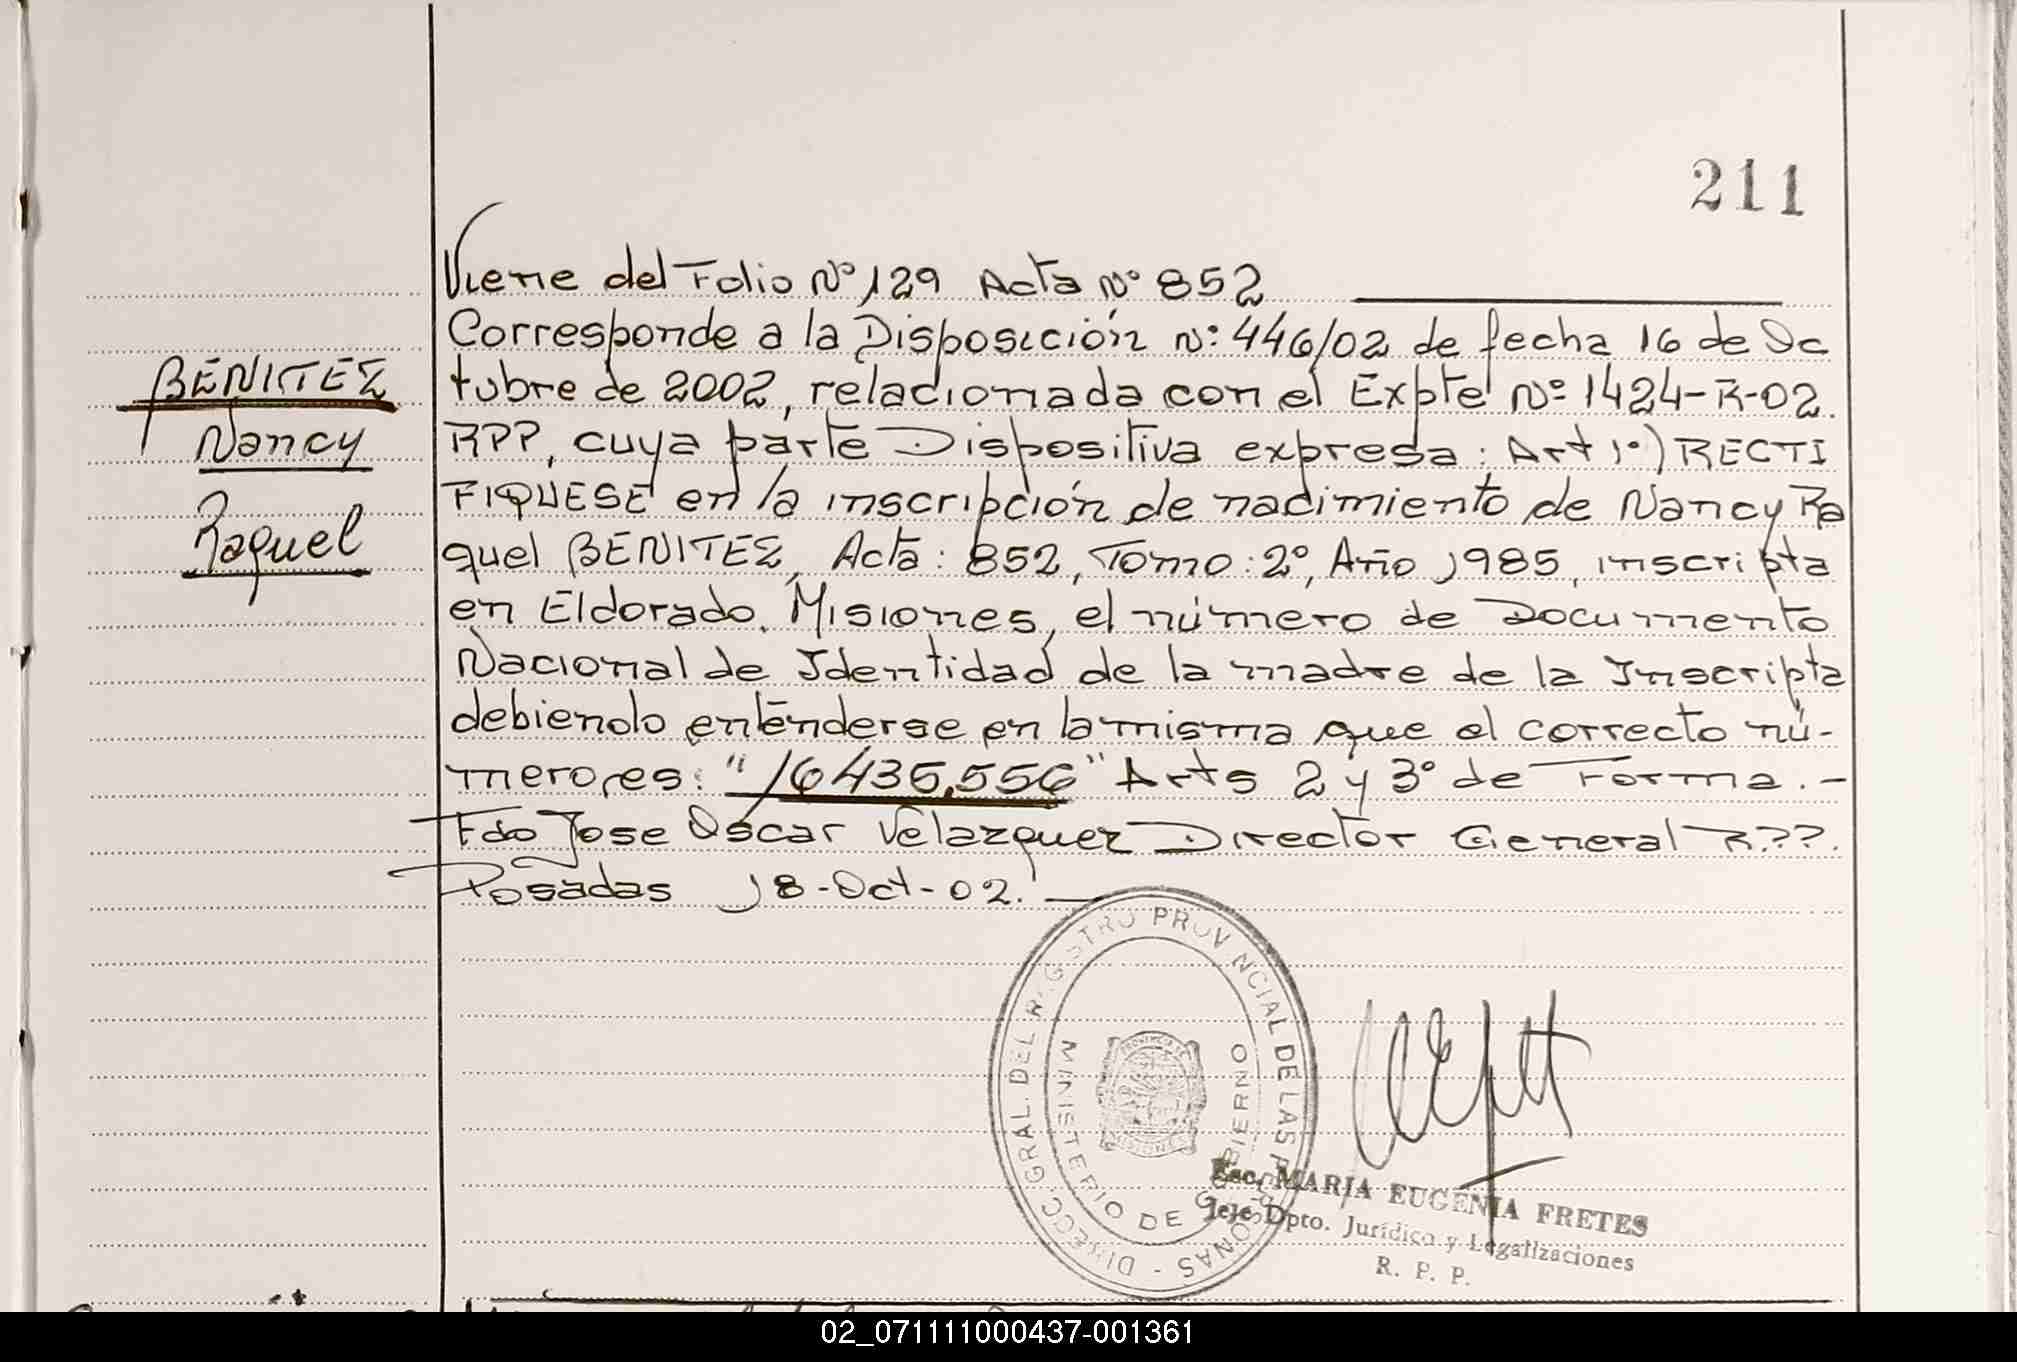 211
Viene del Folio Nº 129 Acta Nº 852
Corresponde a la Disposición Nº: 446/02 de fecha 16 de Oc
BENITEZ
tubre de 2002, relacionada con el Expte Nº 1424-R-02.
Nancy
RPP, cuya parte Dispositiva expresa: Art 1º) RECTI
Raquel
FIQUESE en la inscripción de nacimiento de Nancy Ra
quel BENITEZ, Acta: 852, Tomo: 2º, Año 1985, inscripta
en Eldorado. Misiones, el número de Documento
Nacional de Identidad de la madre de la Inscripta
debiendo entenderse en la misma que el correcto nú-
mero, es: "16435.556" Arts 2 y 3º de Forma.-
Fdo Jose Oscar Velazquez Director General RPP.
Posadas 18-Oct-02.
DIRECC. GRAL. DEL REGISTRO PROVINCIAL DE LAS PERSONAS -
MINISTERIO DE GOBIERNO
PROVINCIA DE
MISIONES
Esc. MARIA EUGENIA FRETES
Jefe Dpto. Jurídico y Legalizaciones
R. P. P.
02_071111000437-001361